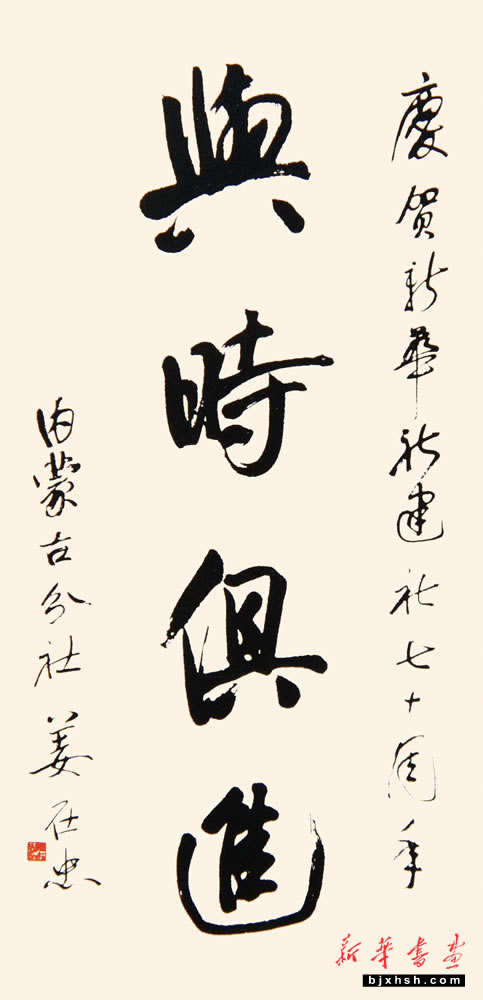 慶贺新華社建社七十周年
與時俱進
内蒙古分社 姜在忠
新華書画
bjxhsh.com